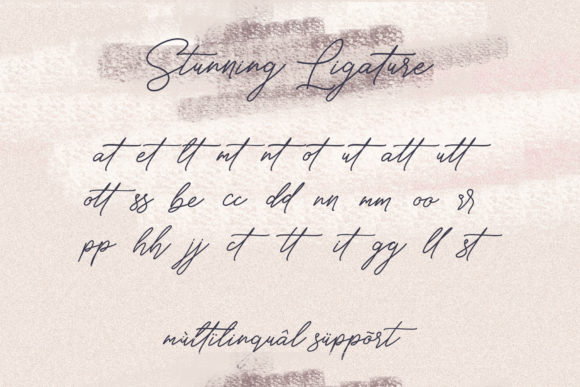 Stunning Ligature
at et lt mt nt ot ut att utt
ott ss be cc dd nn mm oo rr
pp hh jj ct tt it gg ll st
mùltïlinguâl süppõrt